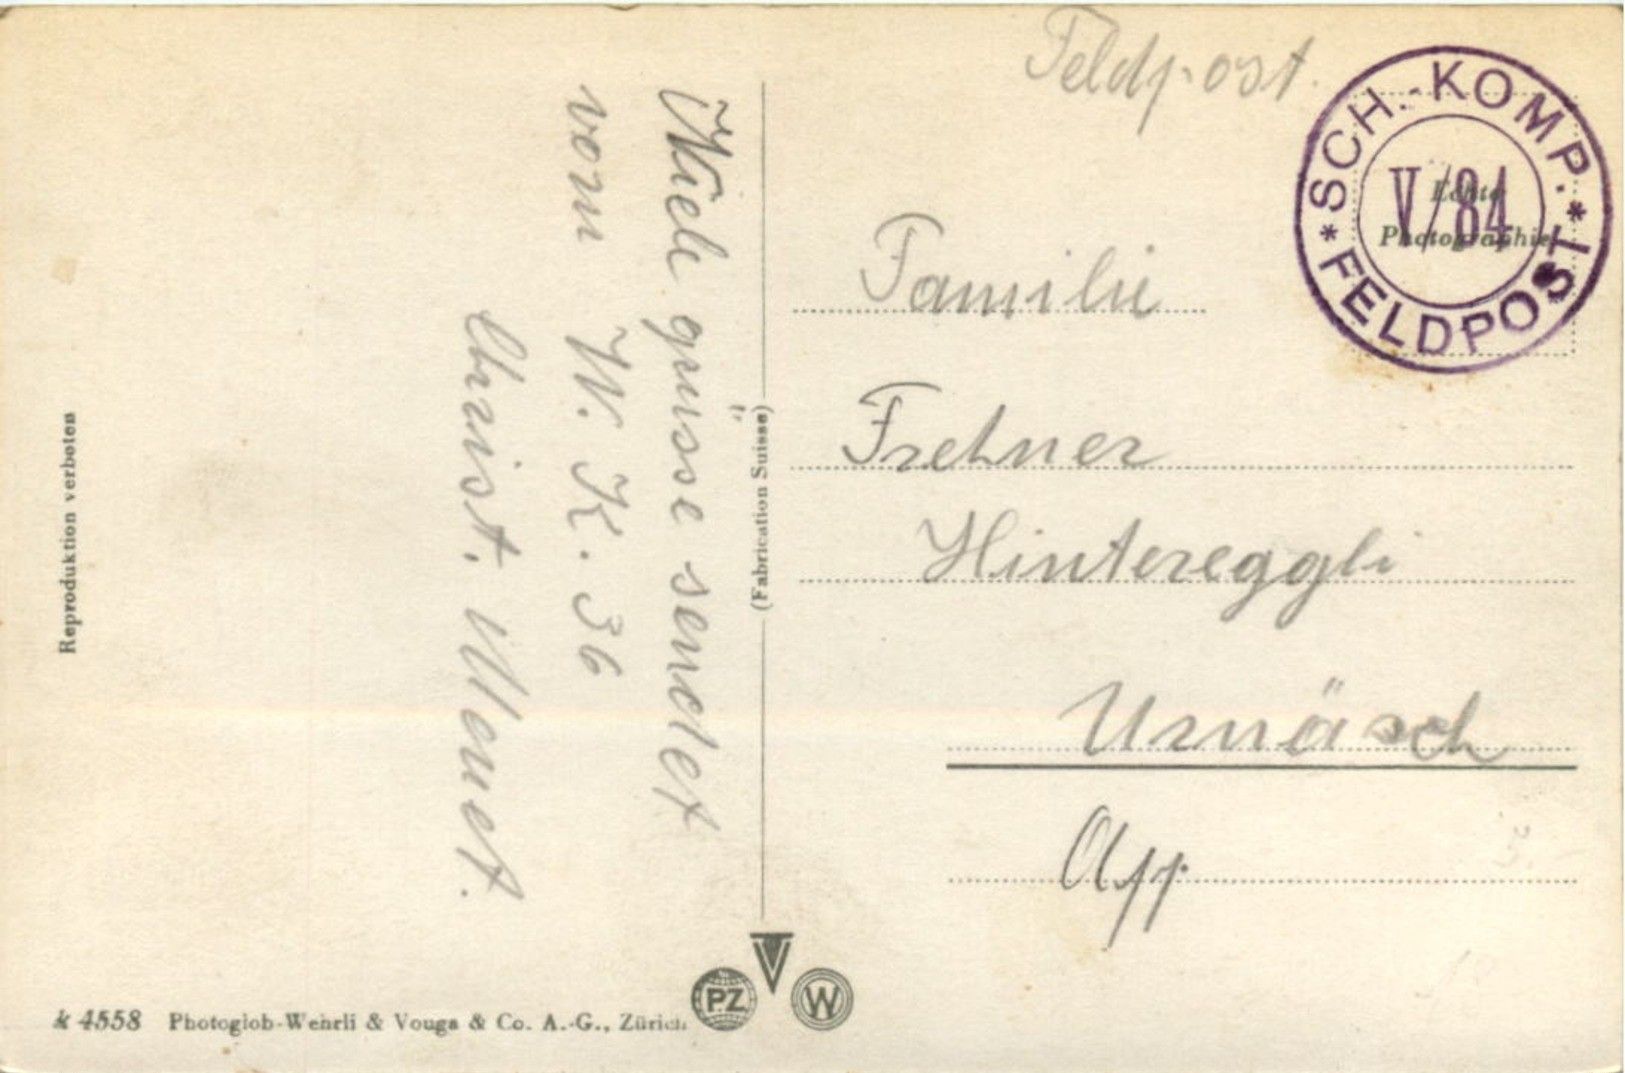 Feldpost.
SCH.-KOMP.
V/84
* FELDPOST *
Echte
Photographie
Familie
Frehner
Hintereggli
Urnäsch
App.
Viele grüsse sendet
vom W. K. 36
Christ. Menet.
(Fabrication Suisse)
Reproduktion verboten
PZ
W
k 4558 Photoglob-Wehrli & Vouga & Co. A.-G., Zürich